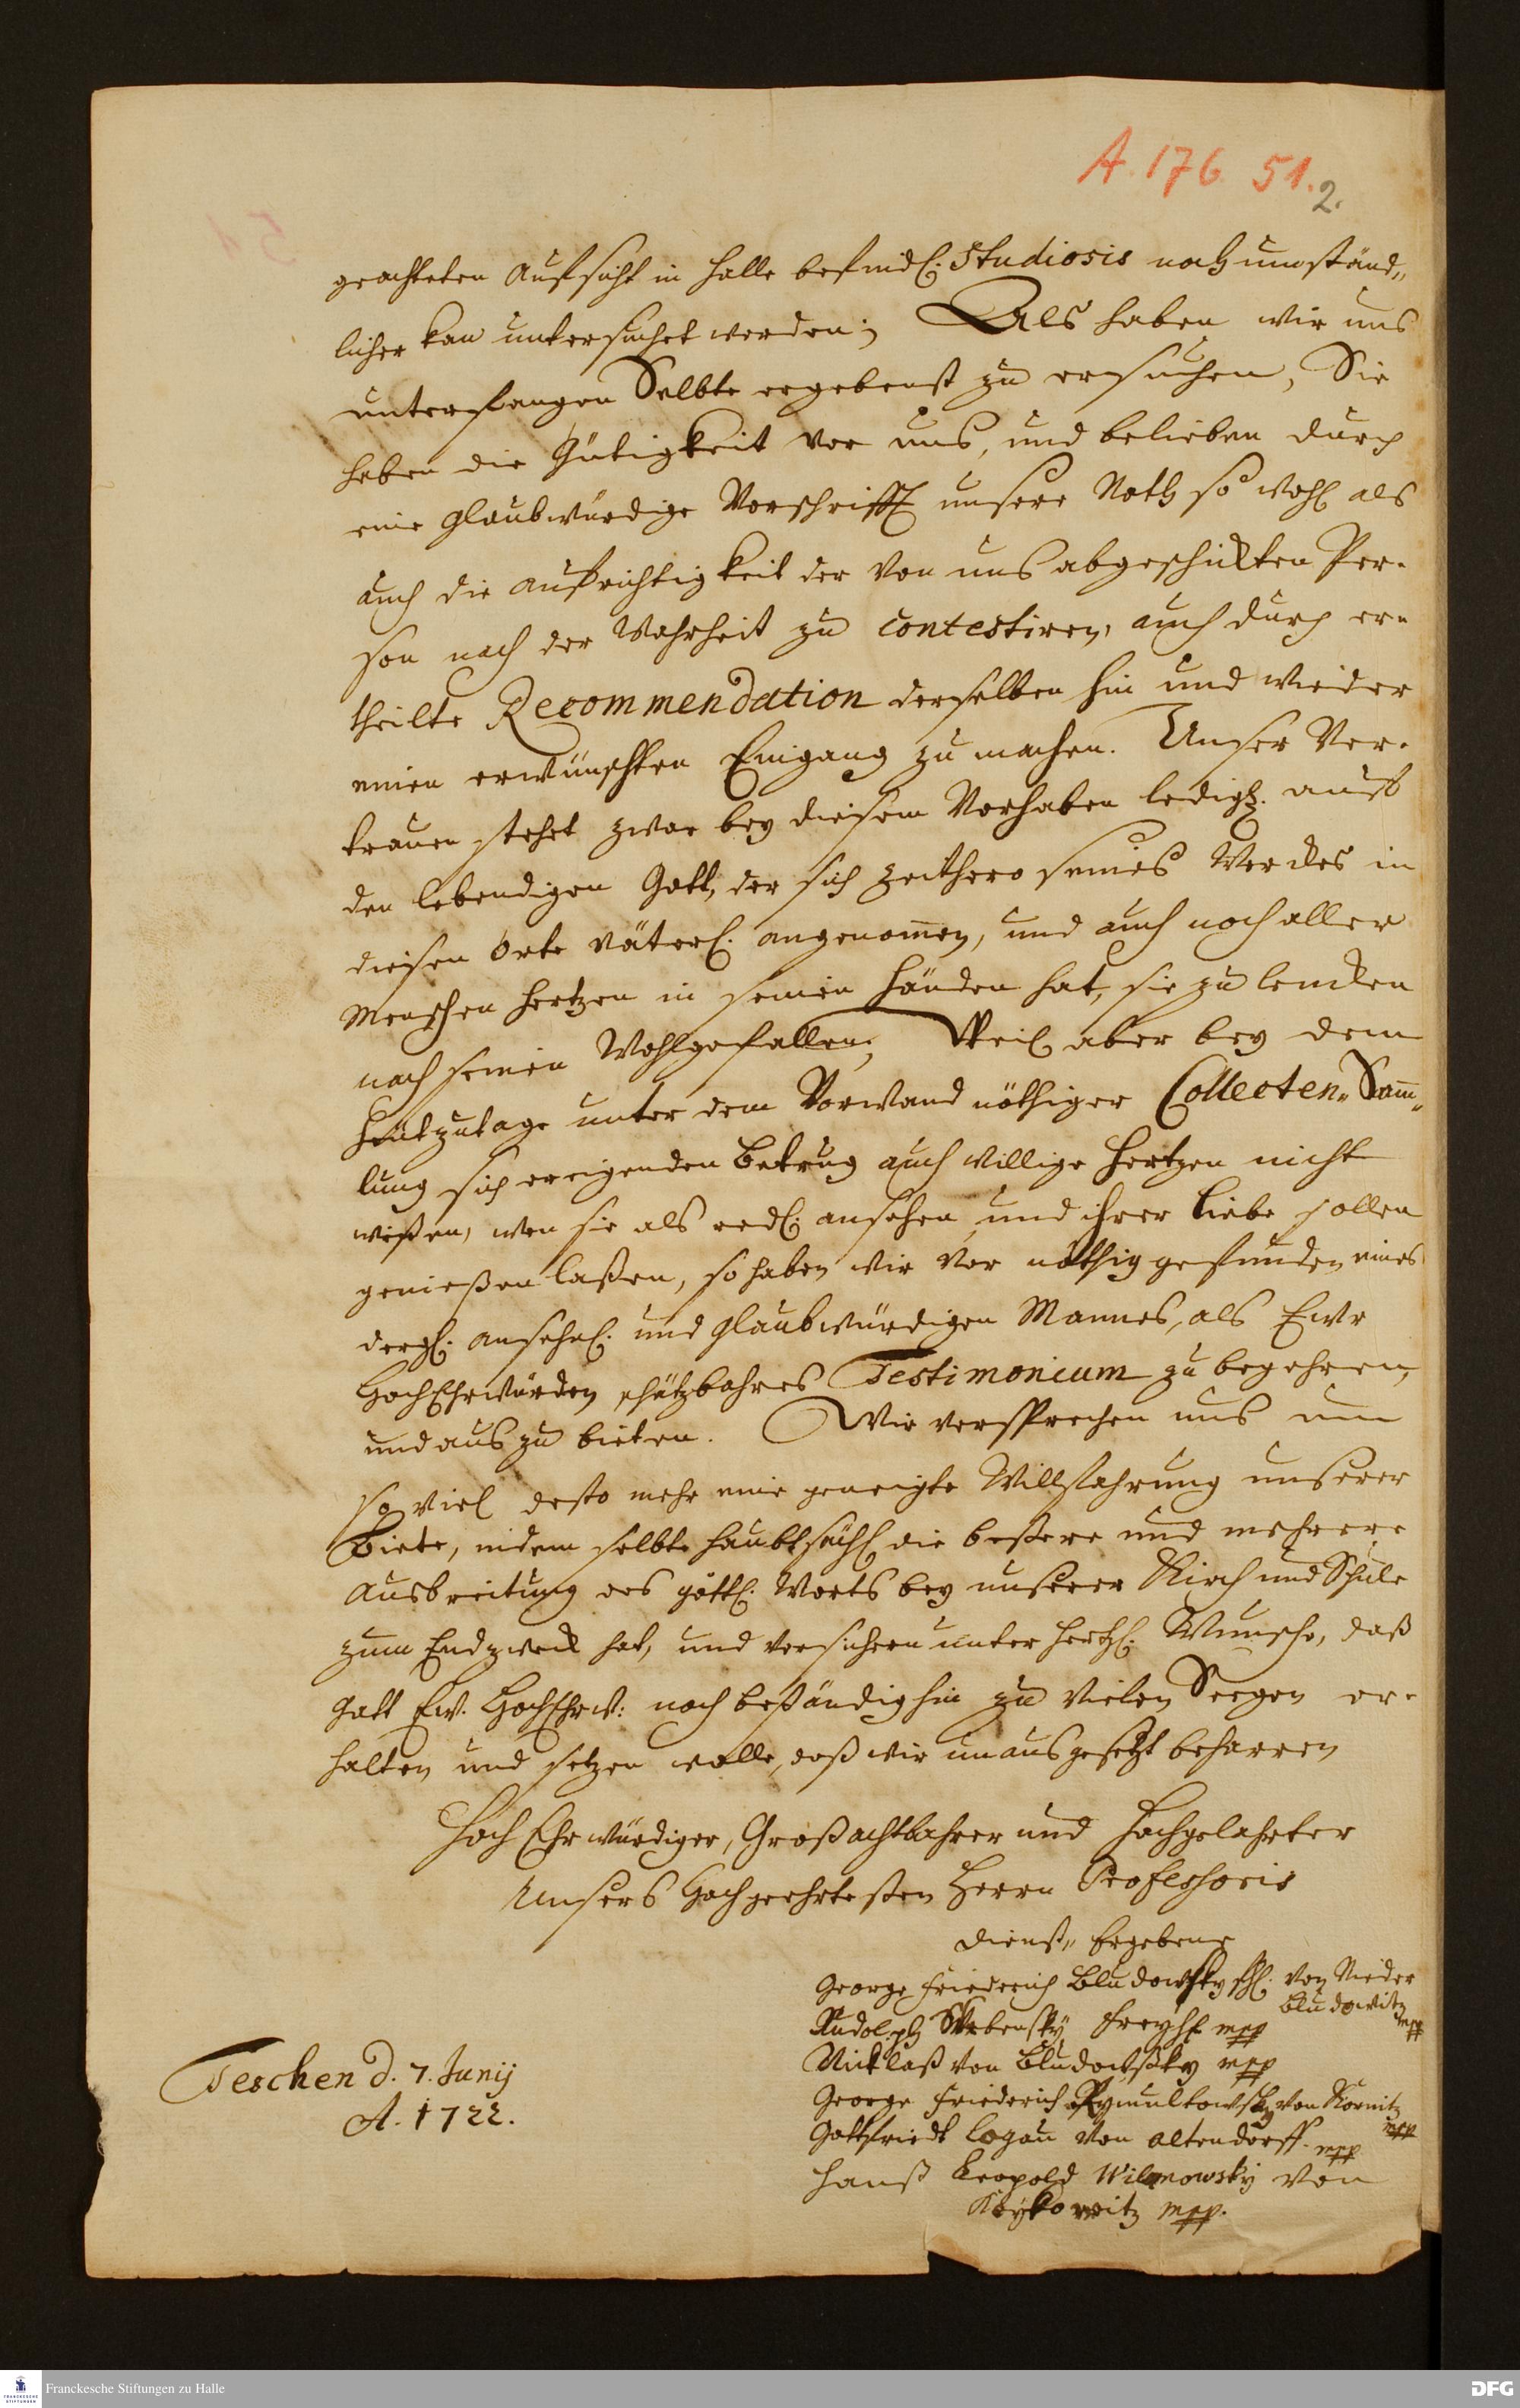 A. 176 51.
2.
geachteten Aufsicht in Halle befindl. Studiosis noch umständ„
licher kan untersuchet werden; Als haben wir uns
unterfangen Selbte ergebenst zu ersuchen, Sie
haben die Gütigkeit vor uns, und belieben durch
eine glaubwürdige Vorschrifft unsere Noth so wohl als
auch die aufrichtigkeit der von uns abgeschickten Per-
son nach der Wahrheit zu contestiren, auch durch er-
theilte Recommendation derselben hin und wieder
einen erwünschten Eingang zu machen. Unser Ver-
trauen stehet zwar bey diesem Vorhaben ledigl. auf
den lebendigen Gott, der sich zeithero seines Werckes in
diesen Orte väterl. angenom̄en, und auch noch aller
Menschen Hertzen in seinen Händen hat, sie zu lencken
nach seinen Wohlgefallen; Weil aber bey dem
heutzutage unter dem Vorwand nöthiger Collecten„ Sam̄„
lung sich ereigenden Betrug auch willige Hertzen nicht
wißen, wen sie als redl. ansehen, und ihrer Liebe sollen
genießen laßen, so haben wir vor nöthig gefunden eines
dergl. ansehnl. und glaubwürdigen Mannes, als Ewr
HochEhrwürden schätzbahres Testimonium zu begehren,
und aus zu bieten. Wir versprechen uns um
so viel desto mehr eine geneigte Willfahrung unserer
Biete, indem selbte haubtsächl die beßere und mehrere
Ausbreitung des göttl. Worts bey unserer Kirch und Schule
zum Endzweck hat, und versichern unter hertzl. Wunsche, daß
Gott Ew. HochEhrw: noch beständighin zu vielen Seegen er-
halten und setzen wolle, daß wir unausgesetzt beharren
Hoch Ehrwürdiger, Großachtbahrer und Hochgelahrter
Unsers Hochgeehrtesten Herrn Professoris
Dienst„ Ergebene
George Friederich Bludowsky von Nieder
Bludowitz
mpp
Rudolph Freyh mpp
Nicklaß von Bludowsky mpp
George Friederich von Kornitz
mpp
Gottfriedt Logau von Altendorff. mpp
Hanß Leopold Wilmowsky von
mpp.
Teschen d. 7. Junij
A. 1722.
Franckesche Stiftungen zu Halle
FRANCKESCHE STIFTUNGEN
DFG